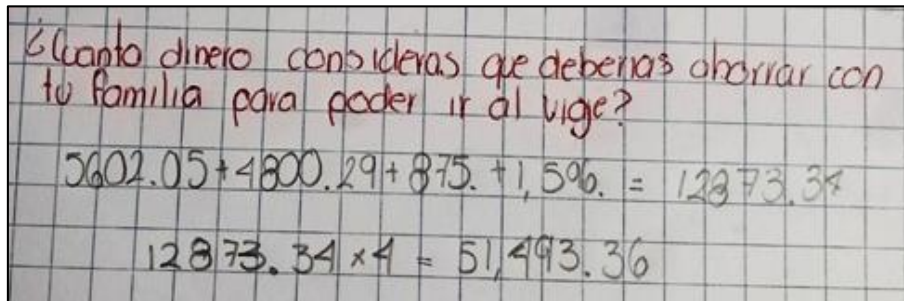 ¿Cuanto dinero consideras que deberias ahorrar con
tu familia para poder ir al vige?
5602.05+4800.29+875.+1,596. = 12873.34
12873.34 x 4 = 51,493.36